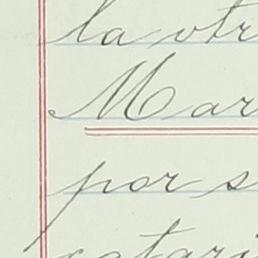 la otr
Mar
por s
catari